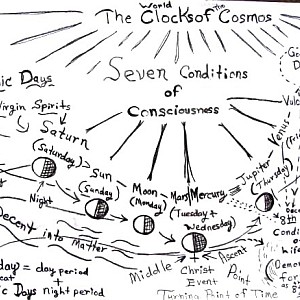 World
The Clocks of the Cosmos
Seven Conditions
of
Consciousness
ic Days
Virgin Spirits
Saturn
(Saturday)
Sun
(Sunday)
Moon
(Monday)
Mars/Mercury
(Tuesday +
Wednesday)
Jupiter
(Thursday)
Venus
(Fri
Vul
Go
D
Night
Decent into Matter
Middle
Christ
Event
Point
Ascent
Turning Point of Time
day = day period
+
ic Days night period
Dece
8th
Conditio
of
Life
Demon
for
as 8